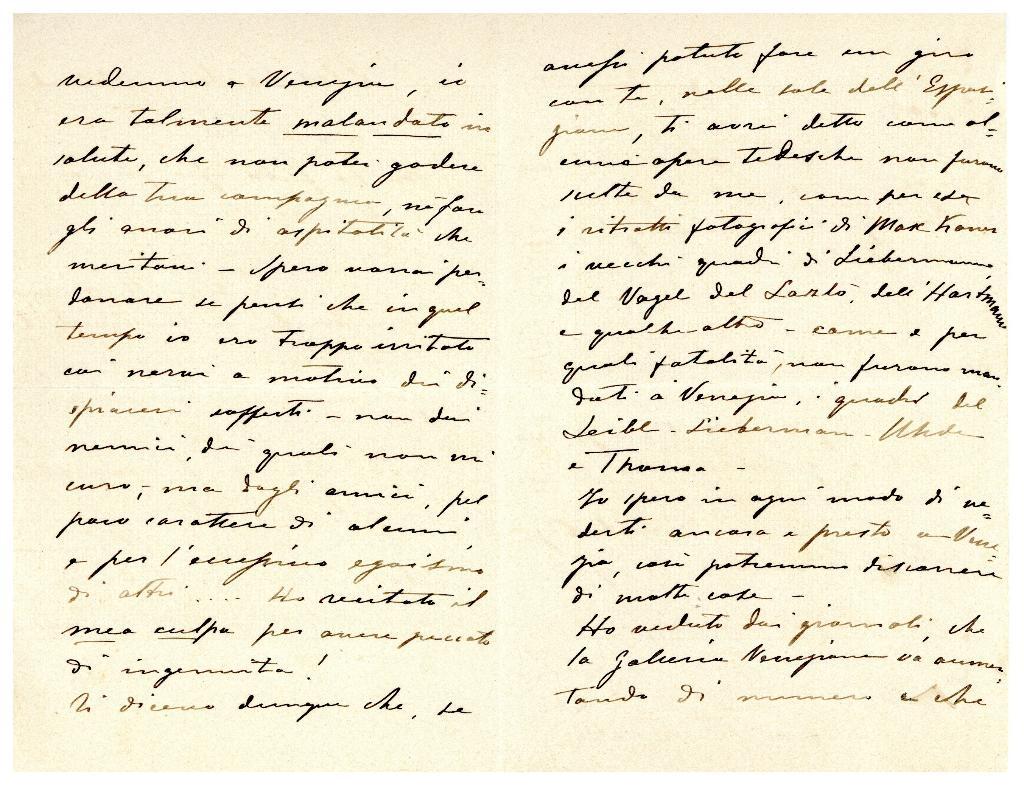 vedemmo a Venezia, io
era talmente malandato in
salute, che non potei godere
della tua compagnia, nè fare
gli onori di ospitalità che
meritavi – Spero vorrai per-
donare se pensi che in quel
tempo io ero troppo irritato
coi nervi a motivo dei di=
spiaceri sofferti – non dai
nemici, dei quali non mi
curo; ma dagli amici, pel
poco carattere di alcuni
e per l'eccessivo egoismo
di altri .... Ho recitato il
mea culpa per avere peccato
di ingenuità!
Ti dicevo dunque che, se
avessi potuto fare un giro
con te, nelle sale dell'Esposi-
zione, ti avrei detto come al=
cune opere tedesche non furono
scelte da me, come per es:
i ritratti fotografici di Max
i vecchi quadri di Liebermann,
del Vogel del Laszló, dell'Hartmann
e qualche altro – come e per
quali fatalità, non furono man
dati a Venezia, i quadri del
Leibl – Lieberman – Uhde
e Thoma –
Io spero in ogni modo di ve=
derti ancora e presto a Vene
zia, così potremmo discorrere
di molte cose –
Ho veduto dai giornali, che
la Galleria Veneziana va aumen-
tando di numero e che